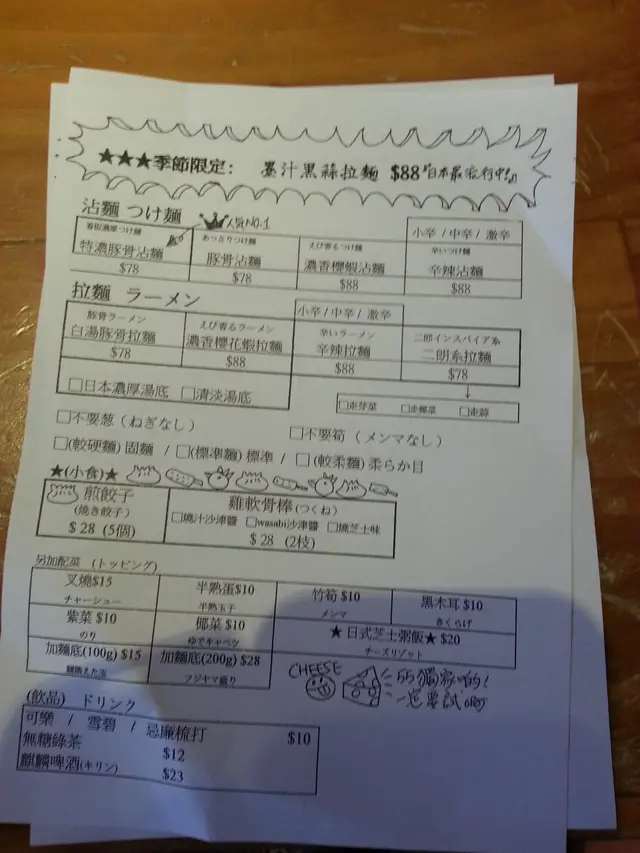 ★★★季節限定： 墨汁黑蒜拉麵 $88『日本最流行中!』
沾麵 つけ麵 人気NO.1
看板濃厚つけ麵 あっさりつけ麵 えび香るつけ麵 小辛 / 中辛 / 激辛
特濃豚骨沾麵 豚骨沾麵 濃香櫻蝦沾麵 辛いつけ麵
辛辣沾麵
$78 $78 $88 $88
拉麵 ラーメン 小辛 / 中辛 / 激辛
豚骨ラーメン えび香るラーメン 辛いラーメン 二郎インスパイア系
白湯豚骨拉麵 濃香櫻花蝦拉麵 辛辣拉麵 二朗系拉麵
$78 $88 $88 $78
□日本濃厚湯底 □清淡湯底
□走芽菜 □走椰菜 □走蒜
□不要葱（ねぎなし） □不要筍（メンマなし）
□(較硬麵) 固麵 / □(標準麵) 標準 / □(較柔麵) 柔らか目
★(小食)★
煎餃子 雞軟骨棒(つくね)
(焼き餃子) □燒汁沙津醬 □wasabi沙津醬 □燒芝士味
$ 28 (5個) $ 28 (2枝)
另加配菜 (トッピング)
叉燒$15 半熟蛋$10 竹筍 $10 黑木耳 $10
チャーシュー 半熟玉子 メンマ きくらげ
紫菜 $10 椰菜 $10 ★ 日式芝士粥飯★ $20
のり ゆでキャベツ チーズリゾット
加麵底(100g) $15 加麵底(200g) $28
替え玉 フジヤマ盛り
CHEESE 獨家啲!
一定要試啊
(飲品) ドリンク
可樂 / 雪碧 / 忌廉梳打 $10
無糖綠茶 $12
麒麟啤酒(キリン) $23